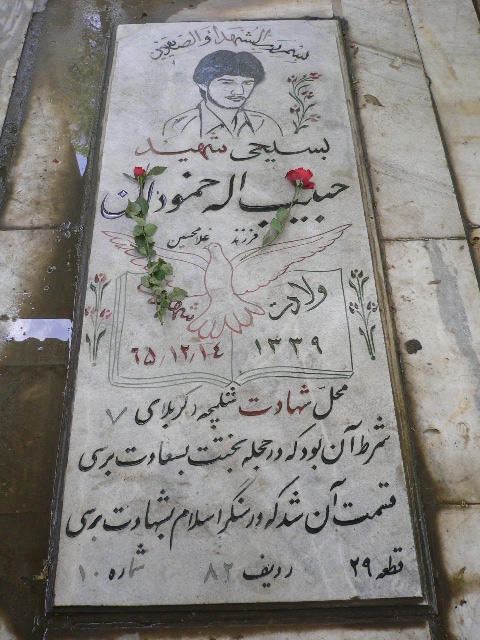 بسم رب الشهدا و الصدیقین
بسیجی شهید
حبیب اله حمزودان
فرزند غلامحسین
ولادت شهادت
۱۳۳۹ ۶۵/۱۲/۱٤
محل شهادت شلمچه کربلای ۷
شرط آن بود که در حجله بختت بسعاوت برسی
قسمت آن شد که در سنگر اسلام بشهاوت برسی
قطعه ۲۹ ردیف ۸۲ شماره ۱۰